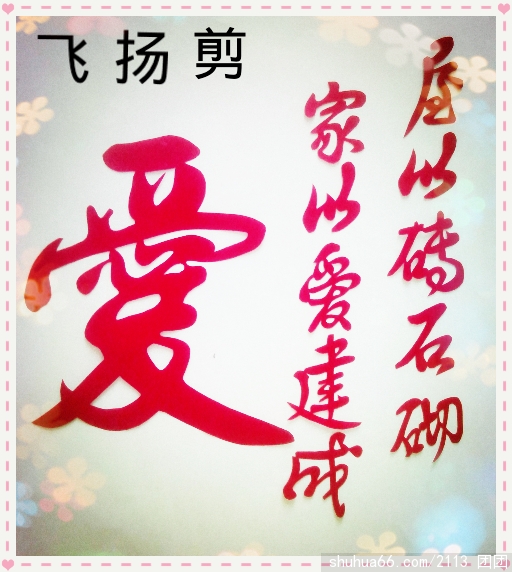 飞扬剪
屋以磚石砌
家以愛建成
愛
shuhua66.com/2113 团团